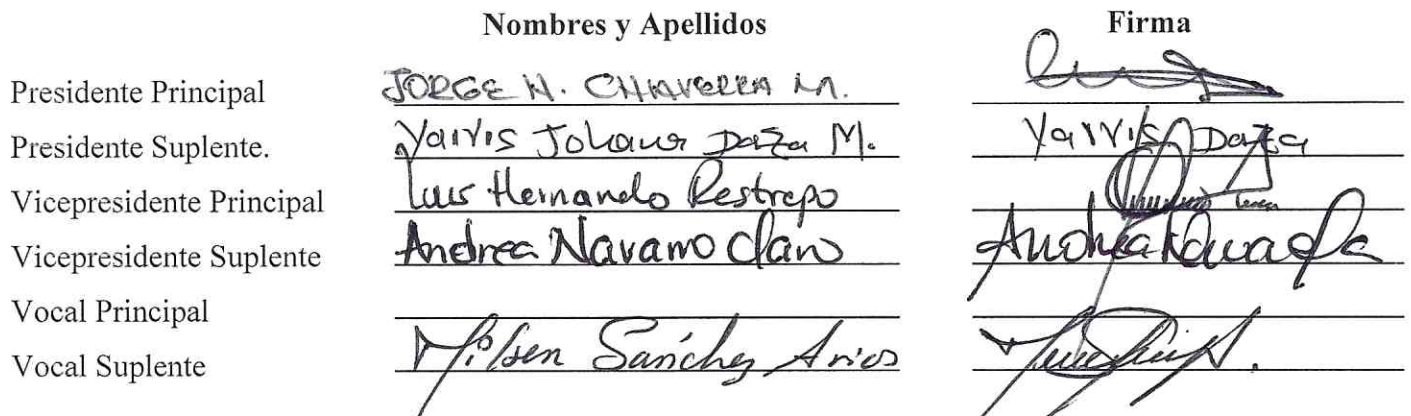 Nombres y Apellidos Firma
Presidente Principal JORGE H. CHAVERRA M.
Presidente Suplente. Yarvis Johana Daza M. Yarvis Daza
Vicepresidente Principal Luis Hernando Restrepo
Vicepresidente Suplente Andrea Navarro Claro
Vocal Principal
Vocal Suplente Milsen Sánchez Arias